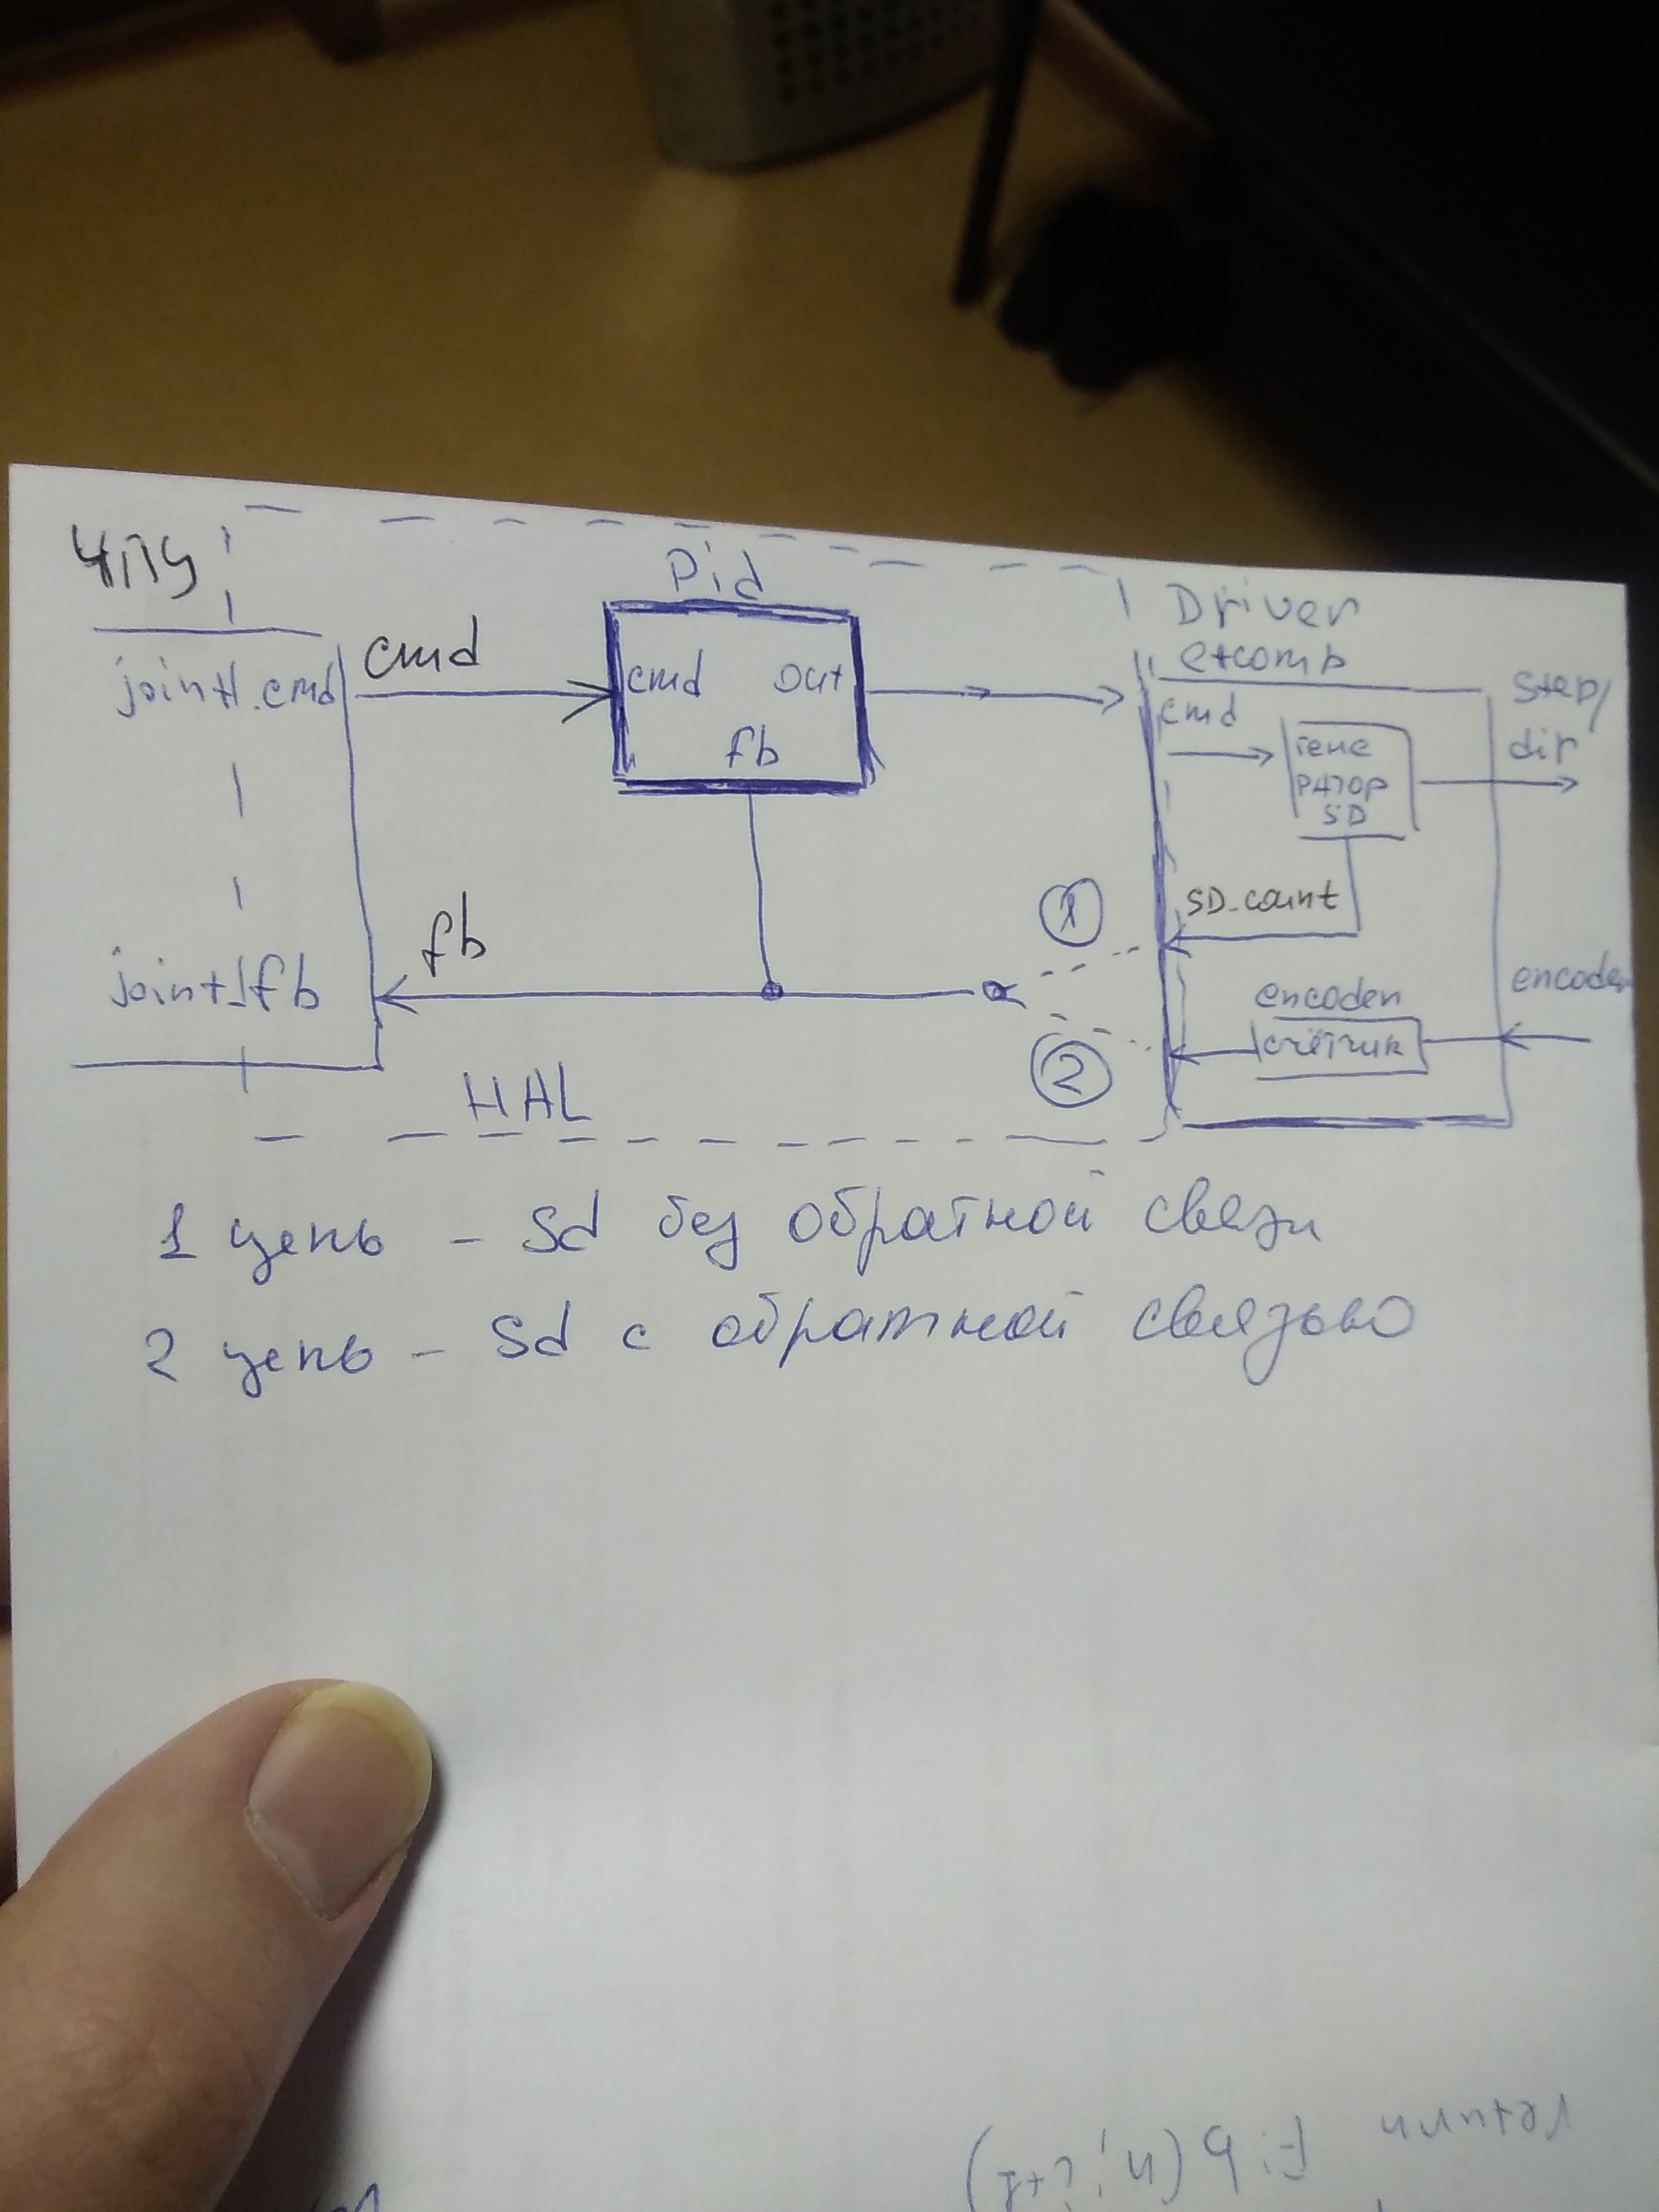 ЧПУ
Pid
Driver
etcomb
joint1.cmd
cmd
cmd out
fb
cmd
гене
ратор
SD
step/
dir
1
SD_count
joint1fb
fb
encoder
счётчик
encoder
2
HAL
1 цепь - Sd без обратной связи
2 цепь - Sd с обратной связью
return Fib(n,